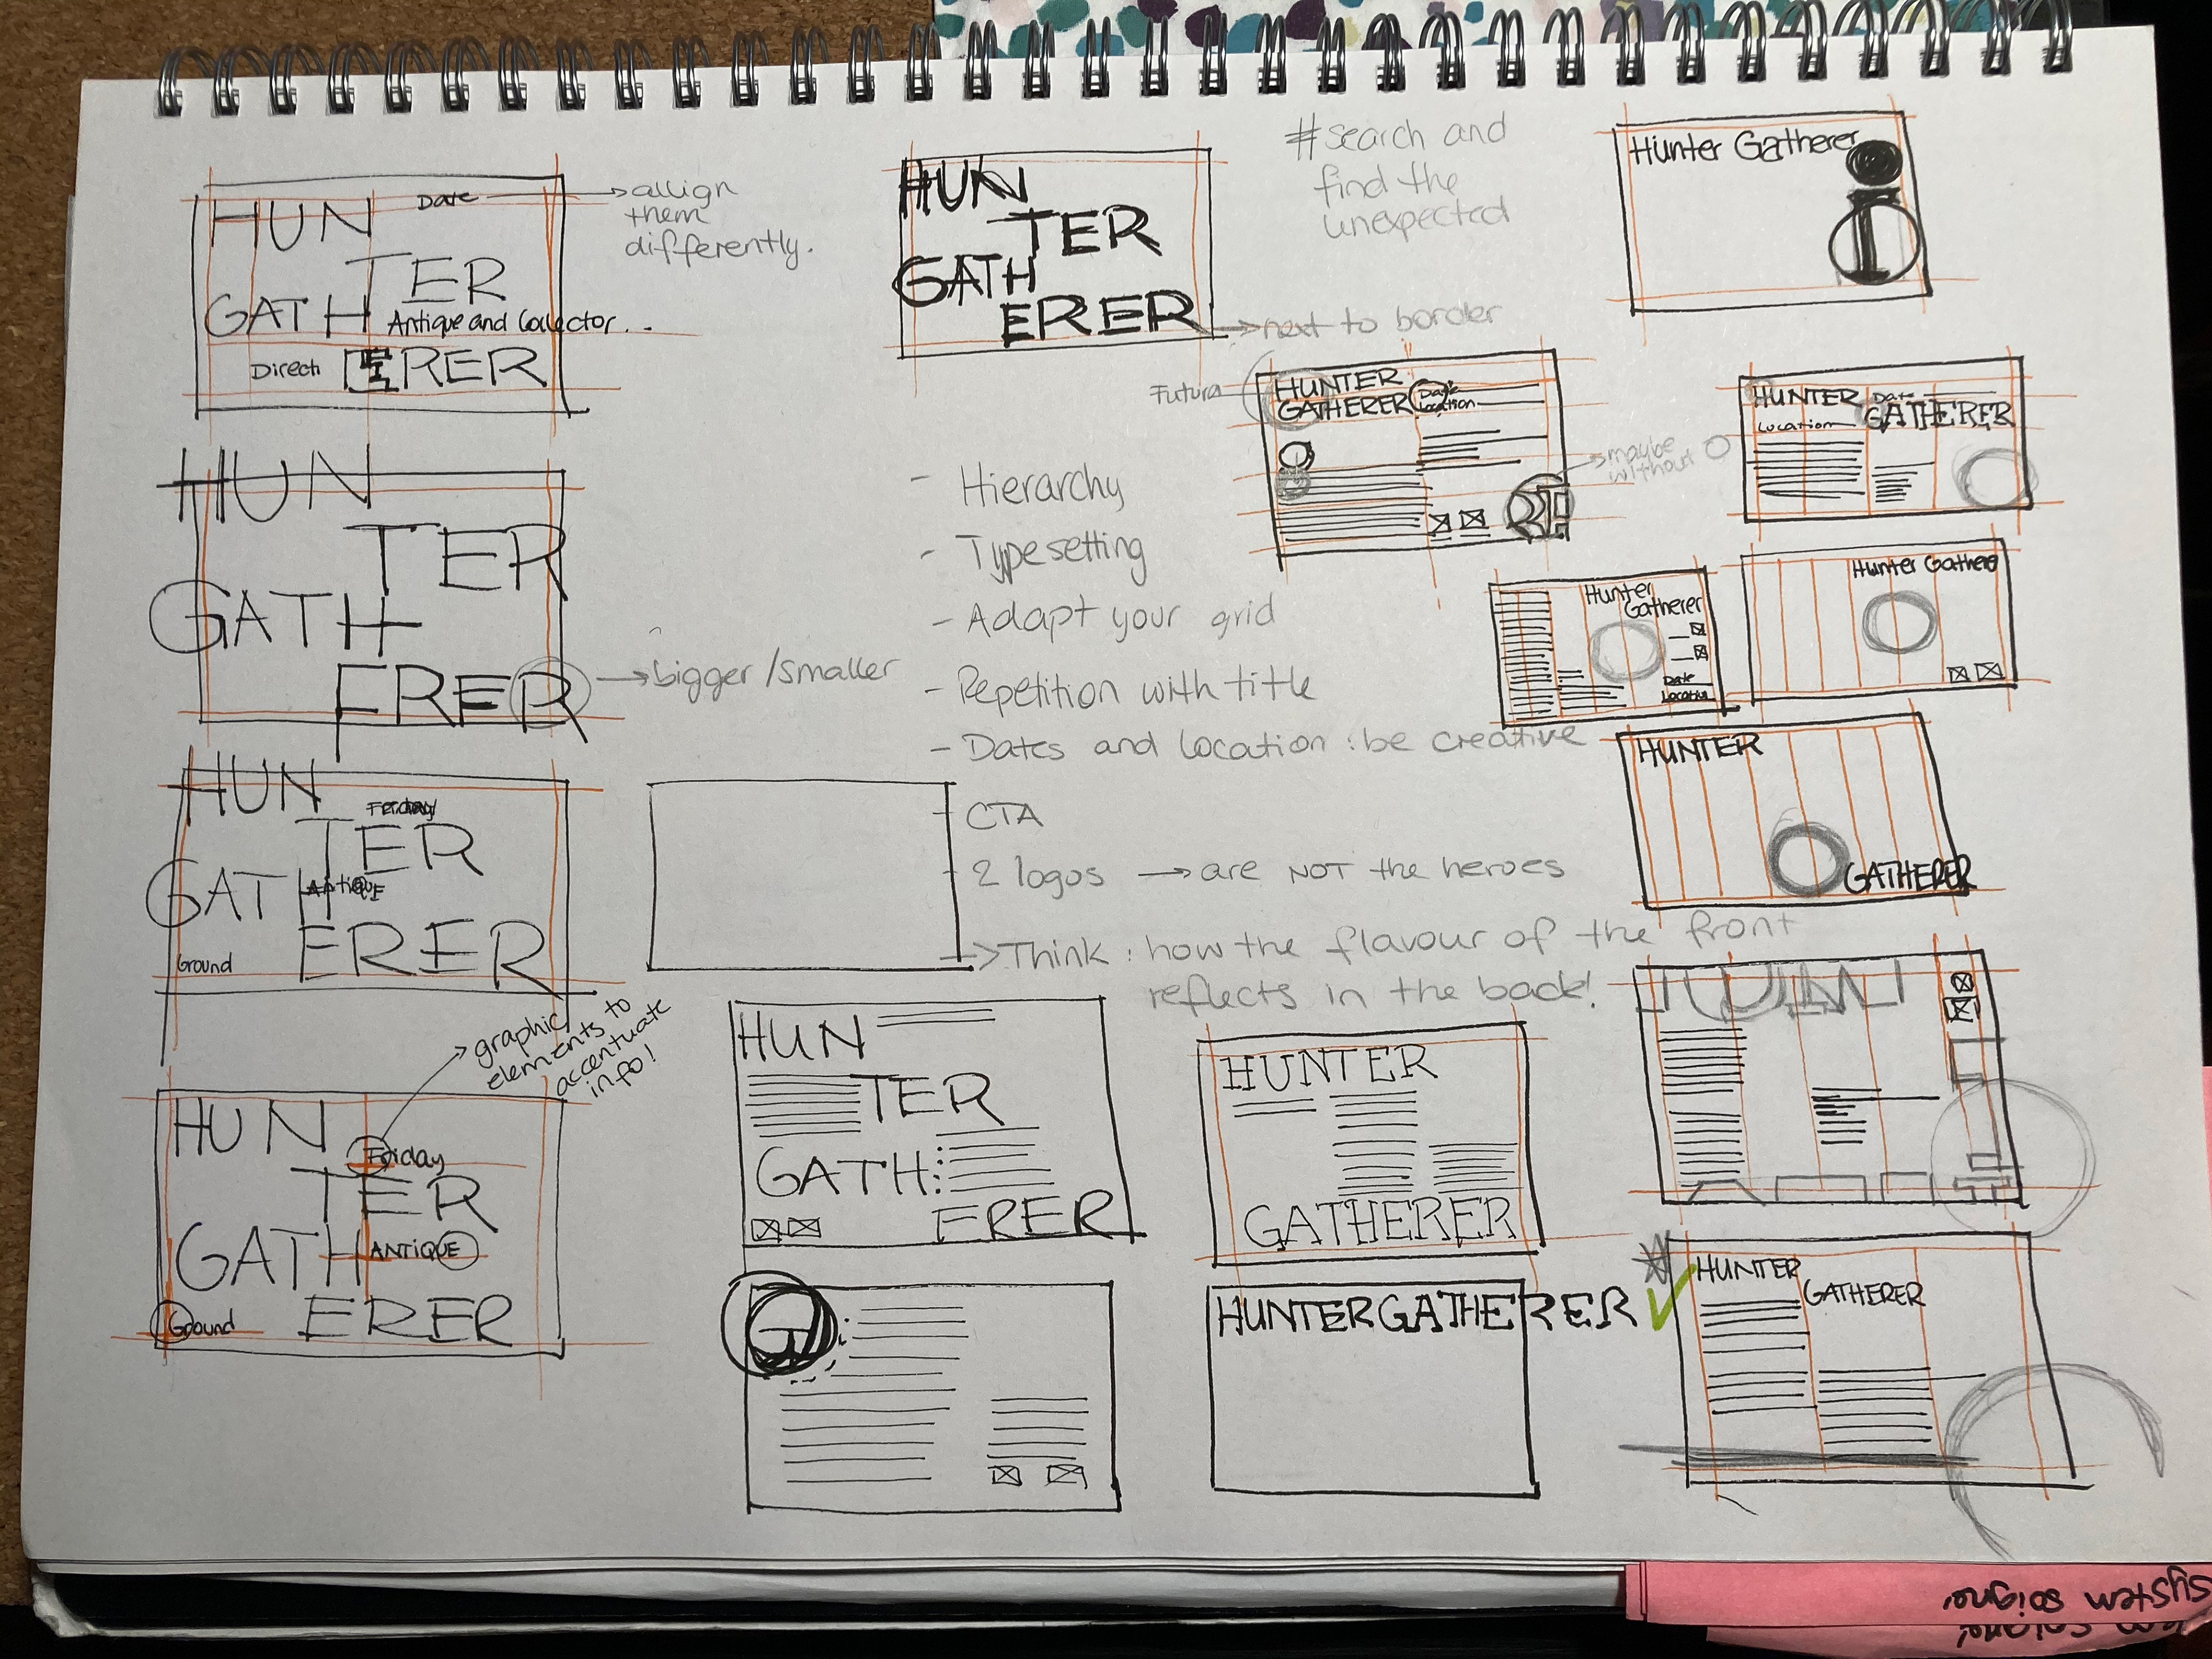 HUN
Date
TER
GATH
Antique and Collector...
Directi
ERER
allign
them
differently.
HUN
TER
GATH
ERER
next to border
#search and
find the
unexpected
Hunter Gatherer
i
HUN
TER
GATH
ERER
bigger/smaller
Futura
HUNTER
GATHERER
Date
Location
maybe
without
HUNTER
Date
GATHERER
Location
- Hierarchy
- Typesetting
- Adapt your grid
- Repetition with title
- Dates and location : be creative
- CTA
- 2 logos → are NOT the heroes
→ Think : how the flavour of the front
reflects in the back!
Hunter
Gatherer
Date
Location
Hunter Gatherer
HUNTER
GATHERER
HUN
Friday
TER
GATH
ANTIQUE
ERER
Ground
graphic
elements to
accentuate
info!
HUN
Friday
TER
GATH
ANTIQUE
Ground
ERER
HUN
TER
GATH
ERER
HUNTER
GATHERER
G
HUNTERGATHERER
HUNTER
GATHERER
system soigne